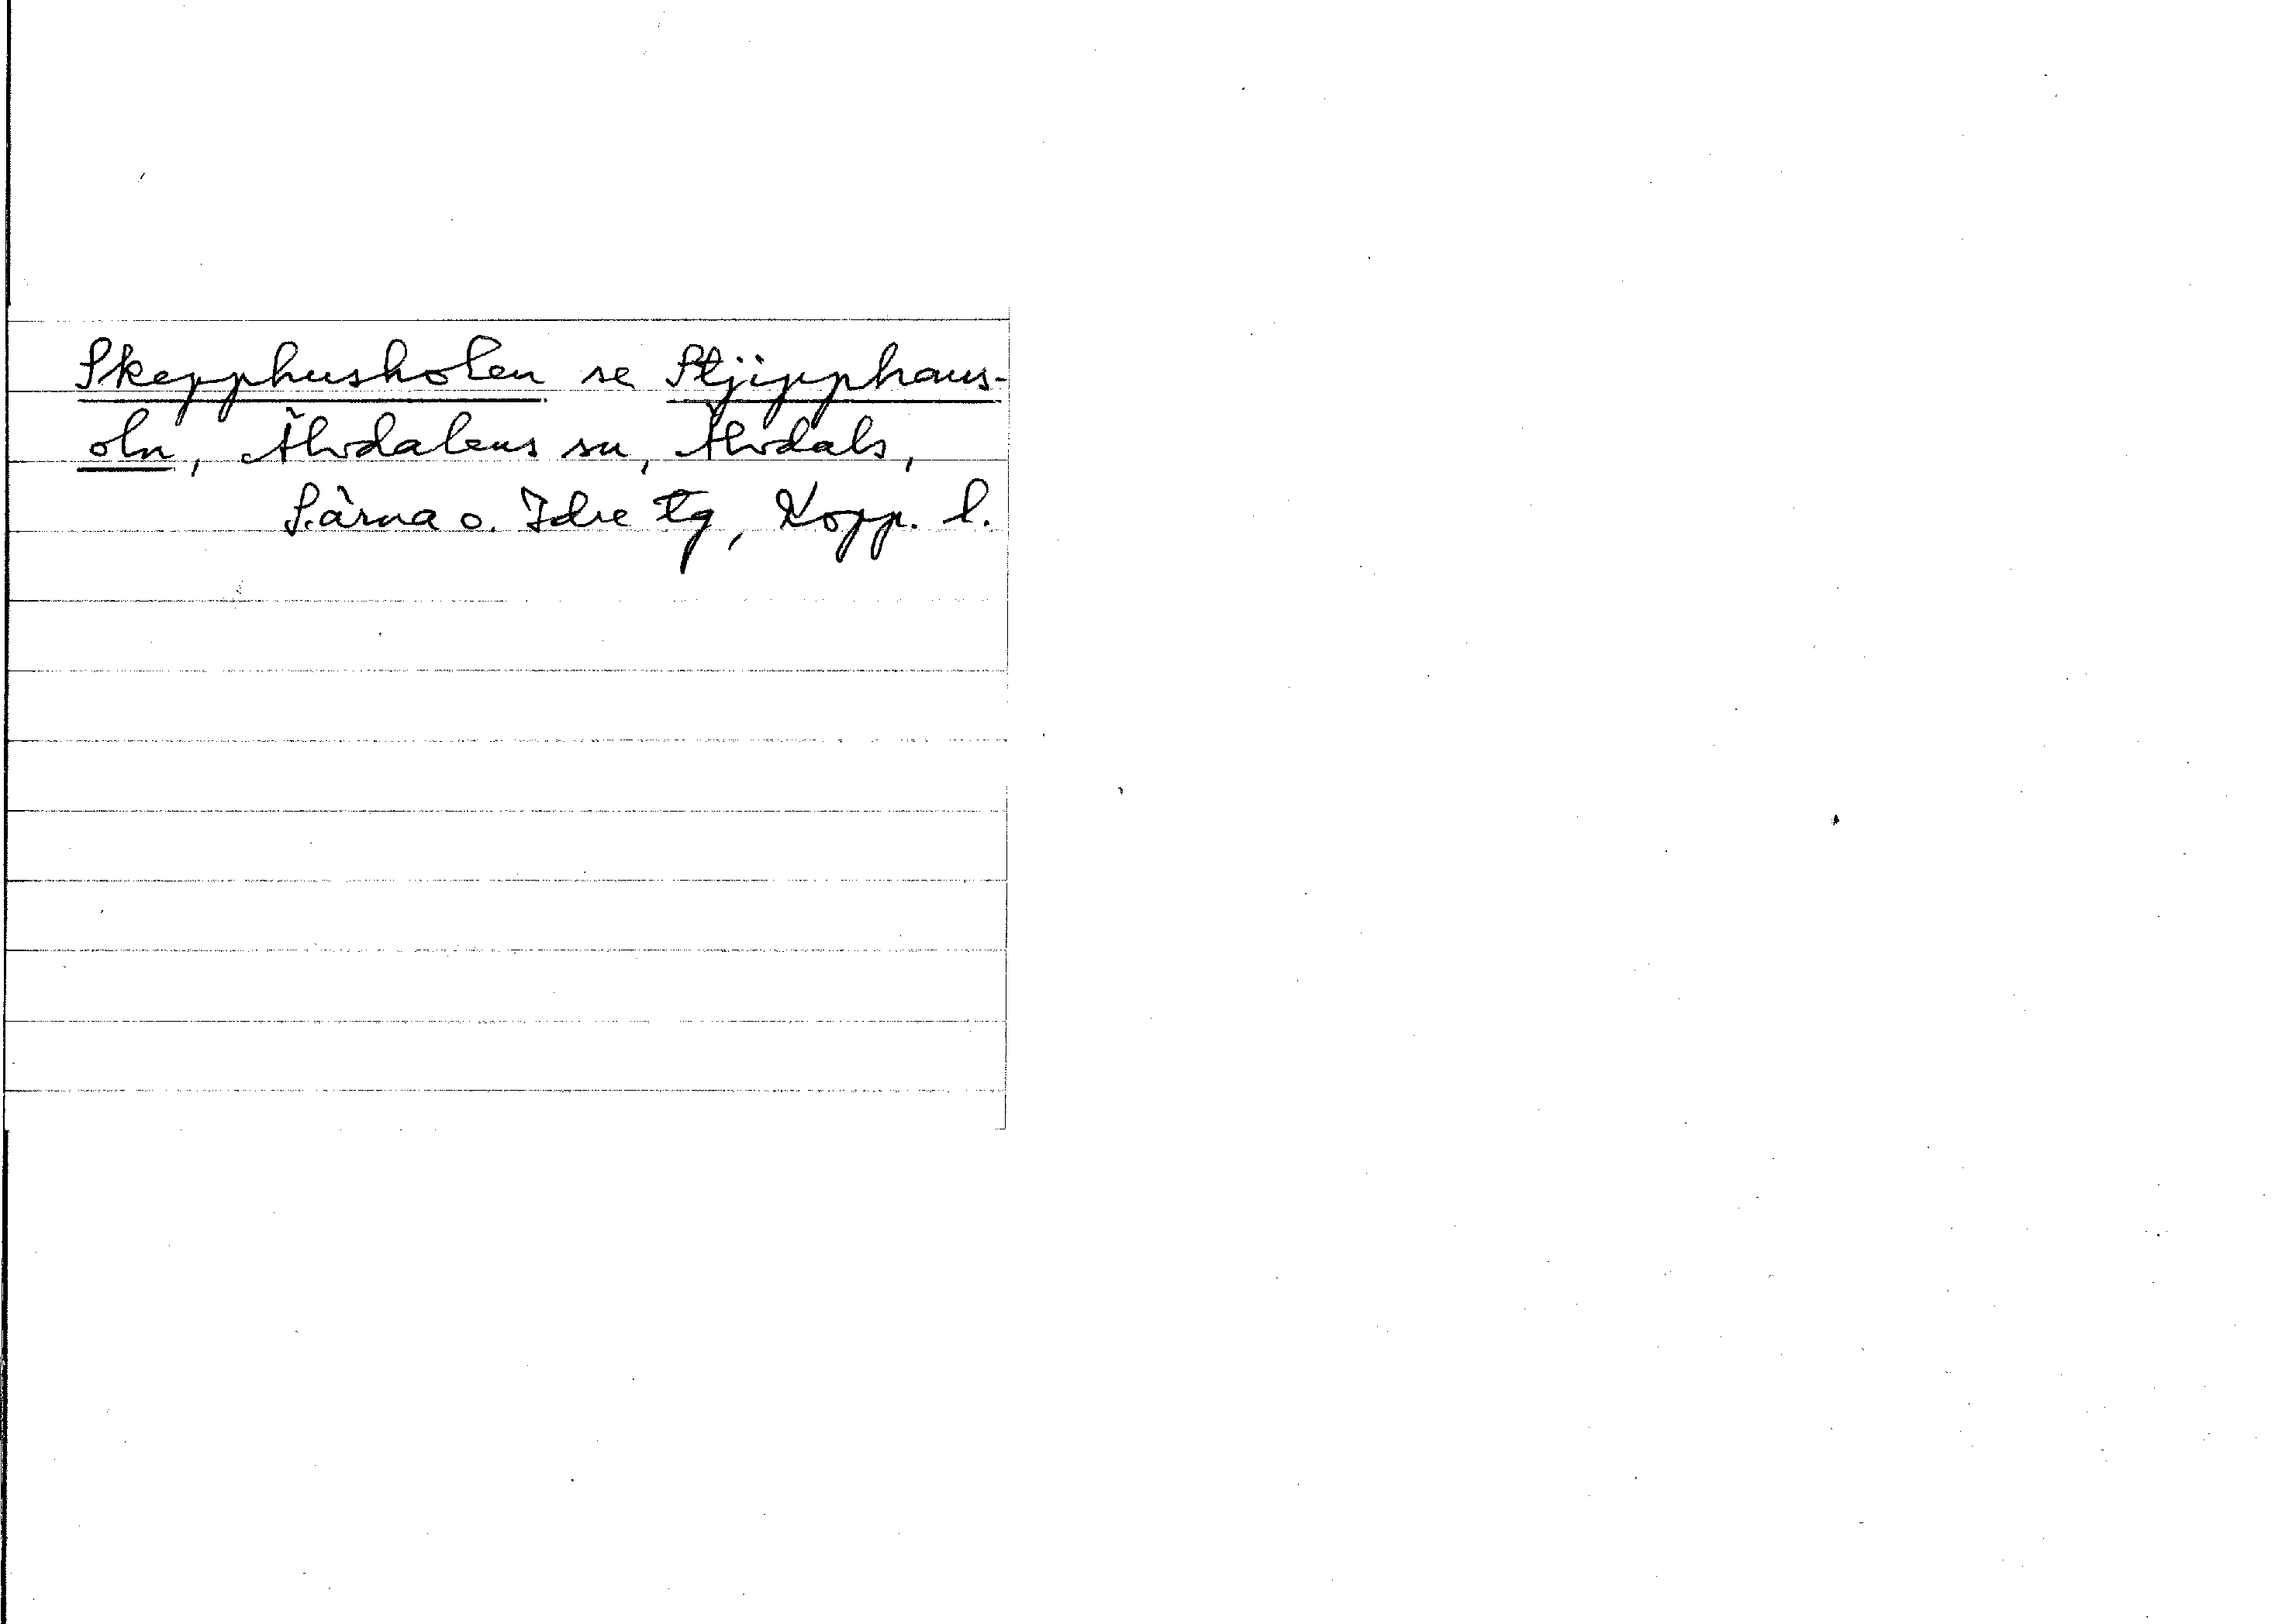 Skepphusholen se Stjipphaus-
oln, Älvdalens sn, Älvdals,
Särna o. Idre tg, Kopp. l.